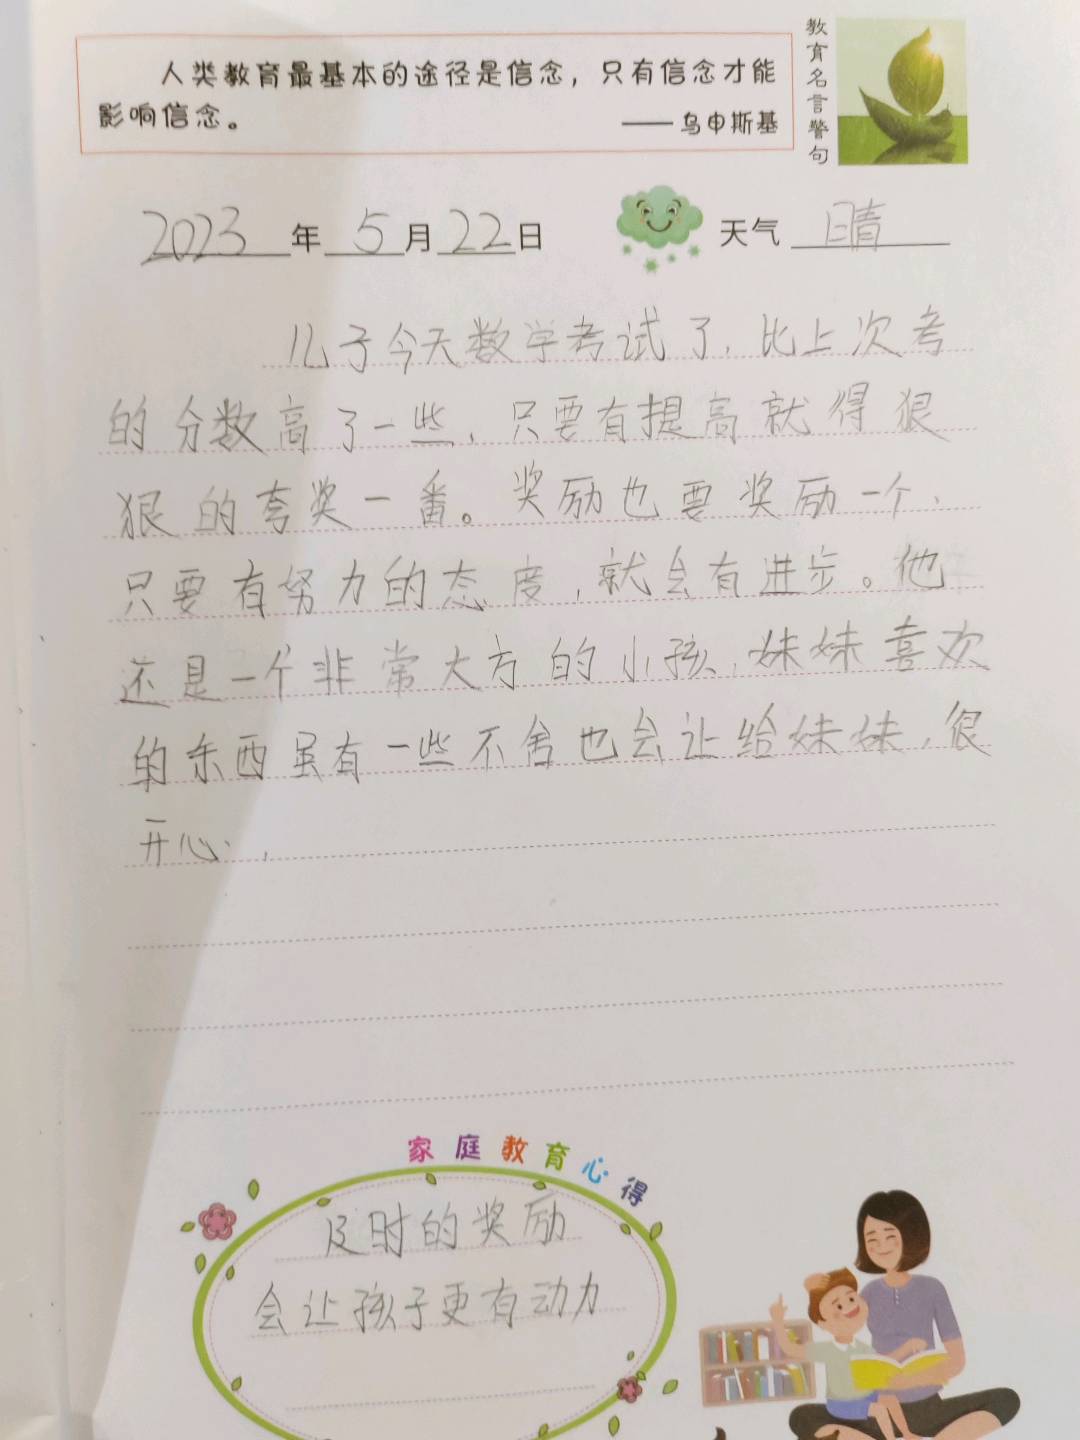 人类教育最基本的途径是信念，只有信念才能
影响信念。
——乌申斯基
教育名言警句
2023年5月22日
天气 晴
儿子今天数学考试了，比上次考
的分数高了一些，只要有提高就得狠
狠的夸奖一番。奖励也要奖励一个、
只要有努力的态度，就会有进步。他
还是一个非常大方的小孩，妹妹喜欢
的东西虽有一些不舍也会让给妹妹，很
开心．，
家庭教育心得
及时的奖励
会让孩子更有动力